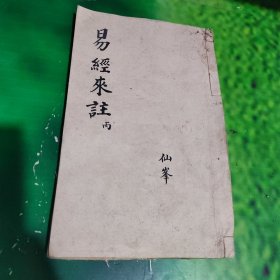 易經來註 丙
仙峯